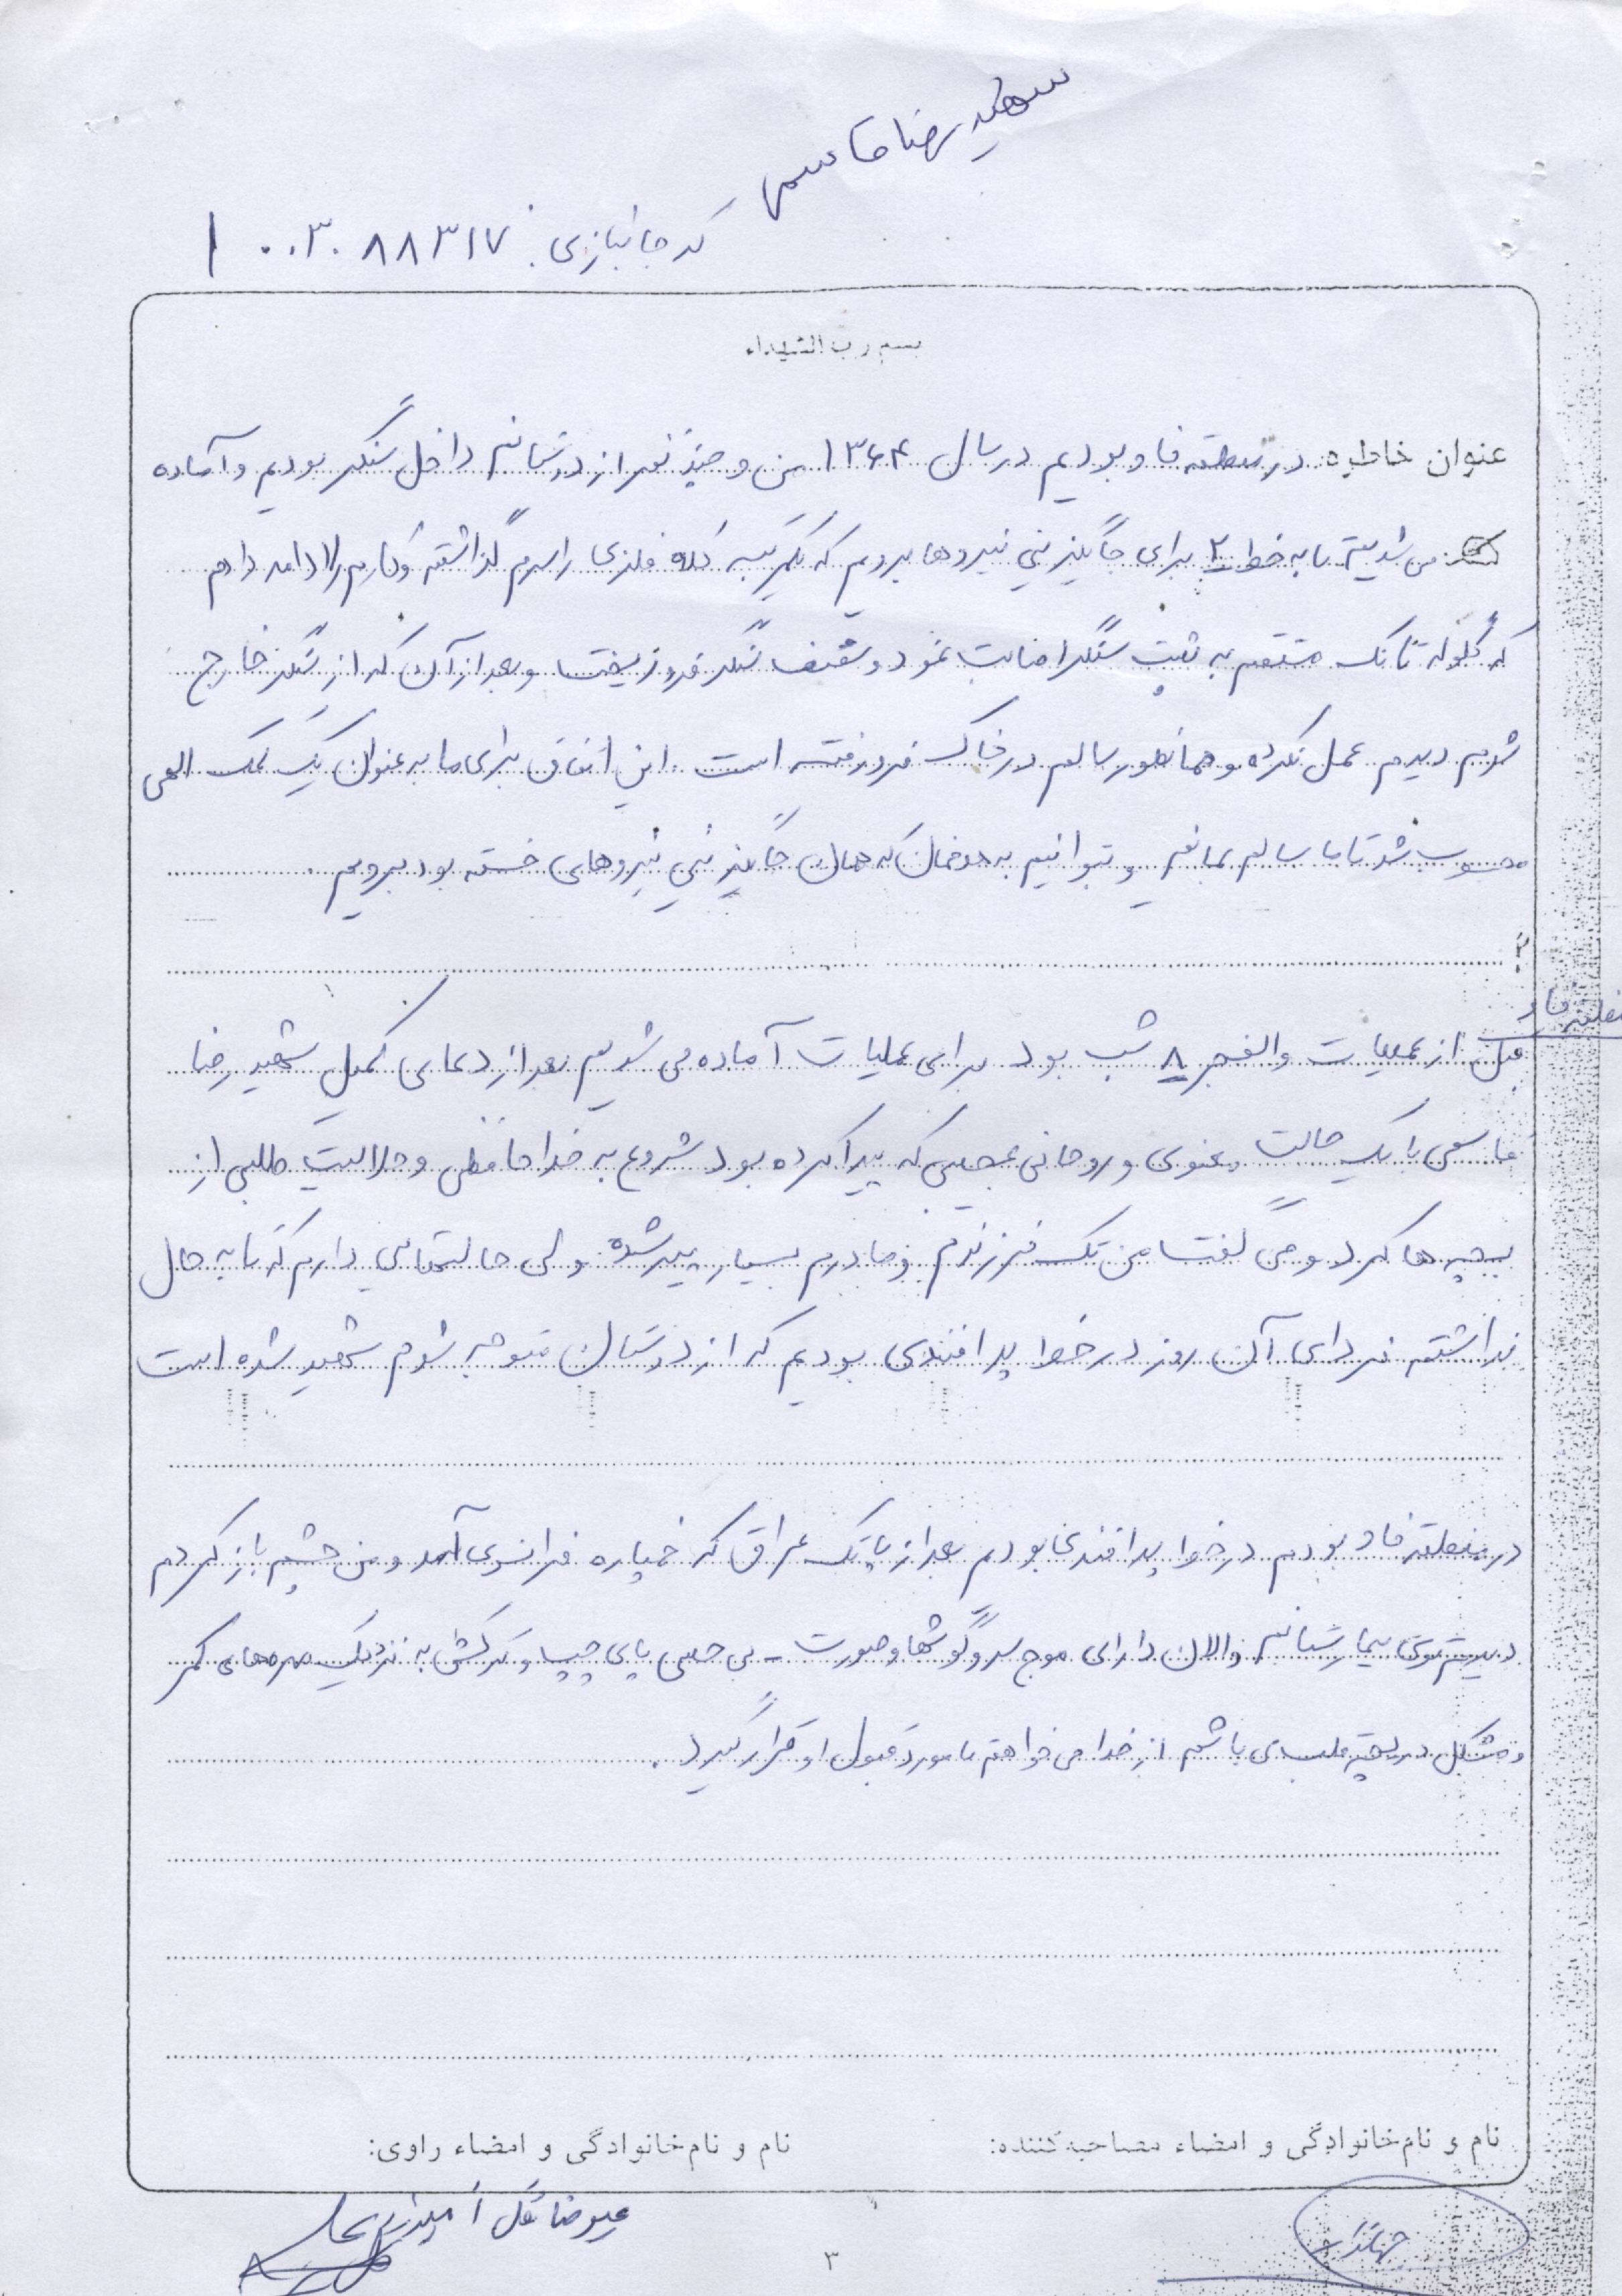 شهید رضا قاسمی
کد جانبازی: ۱۰۰۳۰۸۸۳۱۷
بسم رب الشهداء
عنوان خاطره: در منطقه فاو بودیم در سال ۱۳۶۴ من و چند نفر از دوستانم داخل سنگر بودیم و آماده
می شدیم تا به خط ۲ برای جایگزینی نیروها برویم که یکمرتبه کلاه فلزی را سرم گذاشته و کارم را ادامه دادم
که گلوله تانک مستقیم به پشت سنگر اصابت نمود و سقف سنگر فرو ریخت و بعد از آن که از سنگر خارج
شدم دیدم عمل نکرده و همانطور سالم در خاک فرو رفته است. این اتفاق برای ما به عنوان یک کمک الهی
محسوب شد تا ما سالم بمانیم و بتوانیم به هدفمان که همان جایگزینی نیروهای خسته بود برویم.
۲:
منطقه فاو
قبل از عملیات والفجر ۸ شب بود برای عملیات آماده می شدیم بعد از دعای کمیل شهید رضا
قاسمی با یک حالت معنوی و روحانی عجیبی که پیدا کرده بود شروع به خداحافظی و حلالیت طلبی از
بچه ها کرد و می گفت من تک فرزندم و مادرم بسیار پیر شده ولی حالتهایی دارم که تا به حال
نداشتم فردای آن روز در خط پدافندی بودیم که از دوستان متوجه شدم شهید شده است
در منطقه فاو بودم در خط پدافندی بودم بعد از پاتک عراق که خمپاره فرانسوی آمد و من چشم باز کردم
دیدم توی بیمارستانم و الان دارای موج سر و گوشها و صورت - بی حسی پای چپ و ترکش به نزدیک مهره های کمر
و مشکل دریچه قلب می باشم از خدا می خواهم تا مورد قبول او قرار گیرد.
نام و نام خانوادگی و امضاء مصاحبه کننده:
نام و نام خانوادگی و امضاء راوی:
علیرضا گل
۳